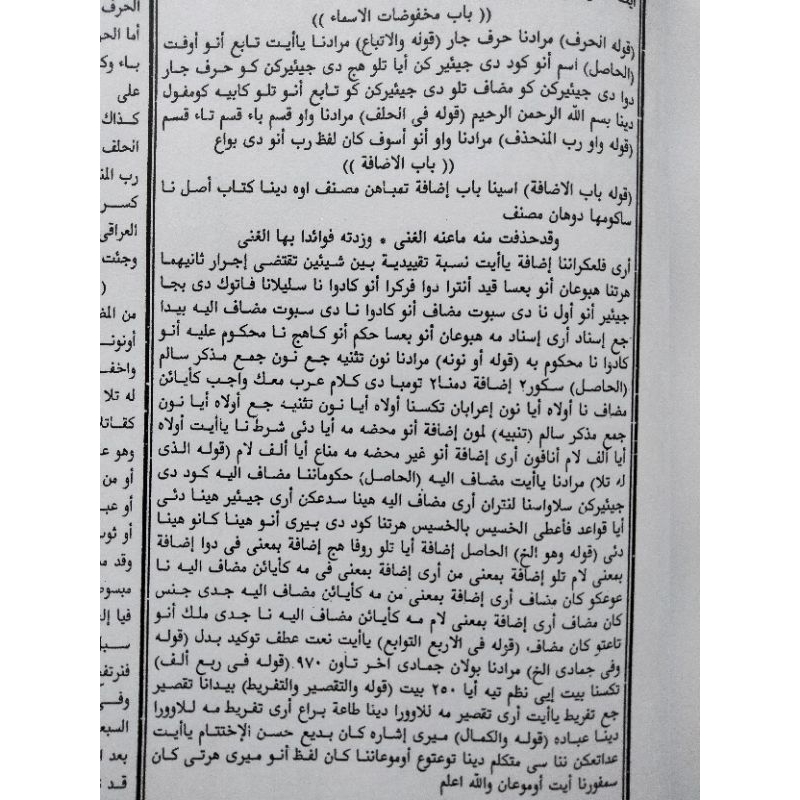 (( باب مخفوضات الاسماء ))
(قوله الحرف) مرادنا حرف جار (قوله والاتباع) مرادنا ياأيت تابع أنو أوفت
(الحاصل) اسم أنو كود دى جيئير كن أيا تلو هج دى جيئيركن كو حرف جار
دوا دى جيئيركن كو مضاف تلو دى جيئيركن كو تابع أنو تلو كابيه كومفول
دينا بسم الله الرحمن الرحيم (قوله فى الحلف) مرادنا واو قسم باء قسم تاء قسم
(قوله واو رب المنحذف) مرادنا واو أنو أسوف كان لفظ رب أنو دى بواع
(( باب الاضافة ))
(قوله باب الاضافة) اسينا باب إضافة تمباهن مصنف اوه دينا كتاب أصل نا
ساكومها دوهان مصنف
وقدحذفت منه ماعنه الغنى * وزدته فوائدا بها الغنى
أرى فلعكراننا إضافة ياأيت نسبة تقييدية بين شيئين تقتضى إجرار ثانيهما
هرتنا هبوعان أنو بعسا قيد أنترا دوا فركرا أنو كادوا نا سليلانا فاتوك دى بجا
جيئير أنو أول نا دى سبوت مضاف أنو كادوا نا دى سبوت مضاف اليه بيدا
جع إسناد أرى إسناد مه هبوعان أنو بعسا حكم أنو كاهج نا محكوم عليه أنو
كادوا نا محكوم به (قوله أو نونه) مرادنا نون تثنيه جع نون جمع مذكر سالم
(الحاصل) سكور٢ إضافة دمنا٢ تومبا دى كلام عرب معك واجب كأيائن
مضاف نا أولاه أيا نون إعرابان تكسنا أولاه أيا نون تثنيه جع أولاه أيا نون
جمع مذكر سالم (تنبيه) لمون إضافة أنو محضه مه أيا دئى شرط نا ياأيت أولاه
أيا ألف لام أنافون أرى إضافة أنو غير محضه مه مناع أيا ألف لام (قوله الذى
له تلا) مرادنا ياأيت مضاف اليه (الحاصل) حكوماننا مضاف اليه كود دى
جيئيركن سلاواسنا لنتران أرى مضاف اليه هينا سدعكن أرى جيئير هينا دئى
أيا قواعد فأعطى الخسيس بالخسيس هرتنا كود دى بيرى أنو هينا كانو هينا
دئى (قوله وهو الخ) الحاصل إضافة أيا تلو روفا هج إضافة بمعنى فى دوا إضافة
بمعنى لام تلو إضافة بمعنى من أرى إضافة بمعنى فى مه كأيائن مضاف اليه نا
عوعكو كان مضاف أرى إضافة بمعنى من مه كأيائن مضاف اليه جدى جنس
كان مضاف أرى إضافة بمعنى لام مه كأيائن مضاف اليه نا جدى ملك أنو
تاعتو كان مضاف، (قوله فى الاربع التوابع) ياأيت نعت عطف توكيد بدل (قوله
وفى جمادى الخ) مرادنا بولان جمادى آخر تاون ٩٧٠ (قوله فى ربع ألف)
تكسنا بيت إيى نظم تيه أيا ٢٥٠ بيت (قوله والتقصير والتفريط) بيدانا تقصير
جع تفريط ياأيت أرى تقصير مه للاوورا دينا طاعة براع أرى تفريط مه للاوورا
دينا عباده (قوله والكمال) ميرى إشاره كان بديع حسن الإختتام ياأيت
عداتعكن ننا سى متكلم دينا توعتوع أوموعاننا كان لفظ أنو ميرى هرتى كان
سمفورنا أيت أوموعان والله اعلم
الحرف
أما الحر
باء وك
على
كذاك
الحلف
رب المن
كسر
العراقى
وجئت
من المض
أونونـ
واخفـ
له تلا
كقاتلا
وهو عـ
أو من
أو عبـ
أو ثوبـ
وقد مـ
مبسوط
فيا إلـ
سبـ
فنرتقـ
وفـى
السبعـ
بعد ا
قد ن